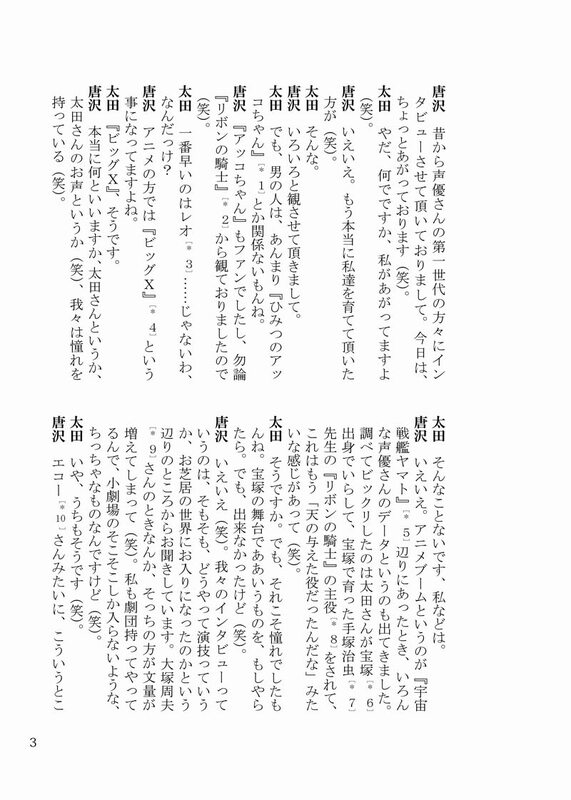 唐沢　昔から声優さんの第一世代の方々にイン
タビューさせて頂いておりまして。今日は、
ちょっとあがっております（笑）。
太田　やだ、何でですか、私があがってますよ
（笑）。
唐沢　いえいえ。もう本当に私達を育てて頂いた
方が（笑）。
太田　そんな。
唐沢　いろいろと観させて頂きまして。
太田　でも、男の人は、あんまり『ひみつのアッ
コちゃん』［＊１］とか関係ないもんね。
唐沢　『アッコちゃん』もファンでしたし、勿論
『リボンの騎士』［＊２］から観ておりましたので
（笑）。
太田　一番早いのはレオ［＊３］……じゃないわ、
なんだっけ？
唐沢　アニメの方では『ビッグX』［＊４］という
事になってますよね。
太田　『ビッグX』、そうです。
唐沢　本当に何といいますか、太田さんというか、
太田さんのお声というか（笑）、我々は憧れを
持っている（笑）。
太田　そんなことないです、私などは。
唐沢　いえいえ。アニメブームというのが『宇宙
戦艦ヤマト』［＊５］辺りにあったとき、いろん
な声優さんのデータというのも出てきました。
調べてビックリしたのは太田さんが宝塚［＊６］
出身でいらして、宝塚で育った手塚治虫［＊７］
先生の『リボンの騎士』の主役［＊８］をされて、
これはもう「天の与えた役だったんだな」みた
いな感じがあって（笑）。
太田　そうですか。でも、それこそ憧れでしたも
んね。宝塚の舞台でああいうものを、もしやら
たら。でも、出来なかったけど（笑）。
唐沢　いえいえ（笑）。我々のインタビューって
いうのは、そもそも、どうやって演技っていう
か、お芝居の世界にお入りになったのかという
辺りのところからお聞きしています。大塚周夫
［＊９］さんのときなんか、そっちの方が文量が
増えてしまって（笑）。私も劇団持ってやって
るんで、小劇場のそこそこしか入らないような、
ちっちゃなものなんですけど（笑）。
太田　いや、うちもそうです（笑）。
唐沢　エコー［＊10］さんみたいに、こういうとこ
3